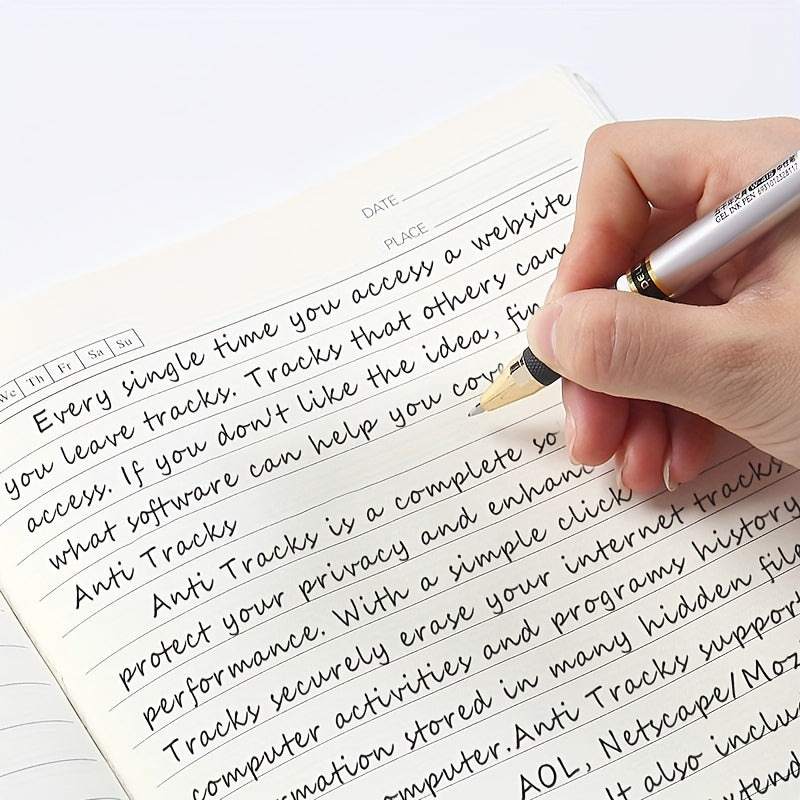 DATE
PLACE
We Th Fr Sa Su
Every single time you access a website
you leave tracks. Tracks that others can
access. If you don't like the idea, fin
what software can help you cove
Anti Tracks
Anti Tracks is a complete so
protect your privacy and enhanc
performance. With a simple click
Tracks securely erase your internet tracks
computer activities and programs history
rmation stored in many hidden file
omputer. Anti Tracks support
AOL, Netscape/Moz
It also includ
xtend
GEL INK PEN 6931012528117
DEL